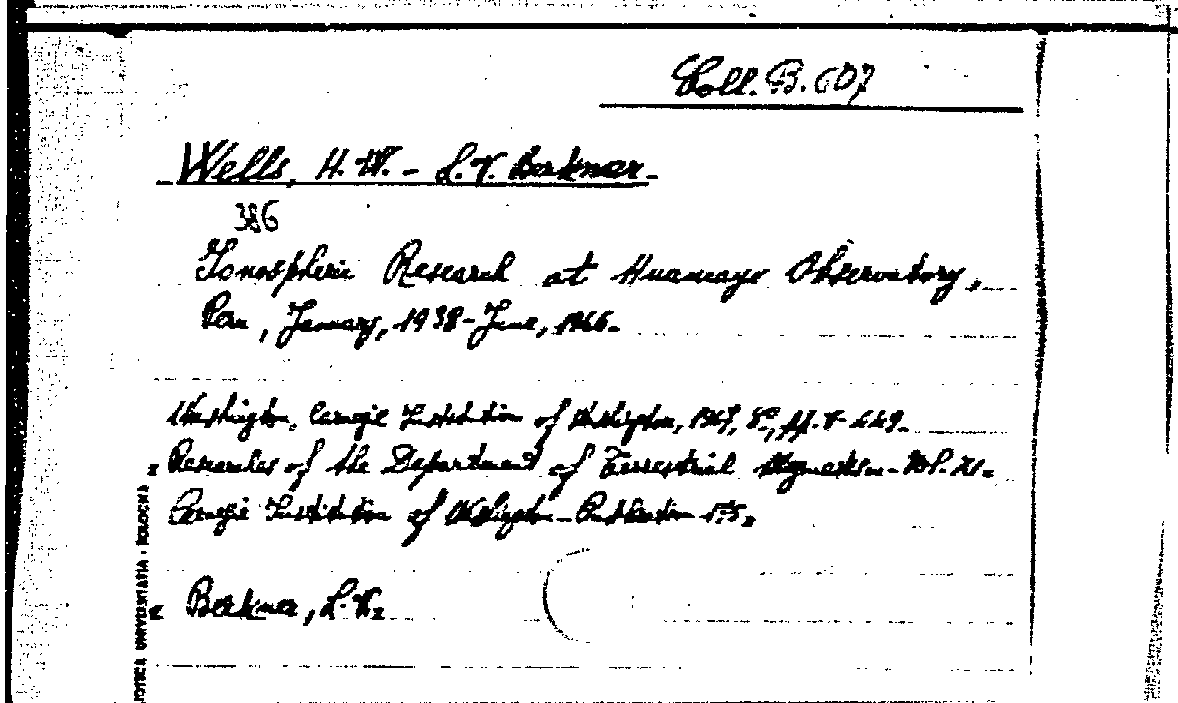 Coll. B. 607
Wells, H. W. - L. V. Berkner
386
Ionospheric Research at Huancayo Observatory,
Peru, January, 1938 - June, 1946.
Washington, Carnegie Institution of Washington, 1947, 8°, pp. V-
Researches of the Department of Terrestrial Magnetism - Vol. XI.
Carnegie Institution of Washington - Publication
Berkner, L. V.
UNIVERSITATIA - BOLOGNA